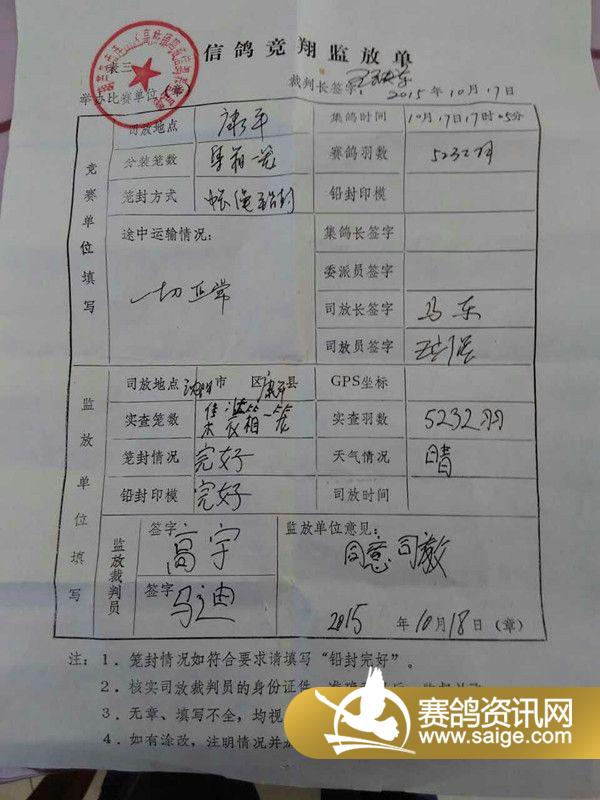 信鸽竞翔监放单
表三
举办比赛单位（章）
裁判长签字：
2015年10月17日
竞赛单位填写
司放地点 康平 集鸽时间 10月17日17时05分
分装笼数 赛鸽羽数 5232羽
笼封方式 铅封印模
途中运输情况： 一切正常
集鸽长签字
委派员签字
司放长签字 马东
司放员签字
监放单位填写
司放地点 沈阳市 区康平县 GPS坐标
实查笼数 实查羽数 5232羽
笼封情况 完好 天气情况 晴
铅封印模 完好 司放时间
监放裁判员
签字 高宇
签字 马迪
监放单位意见：
同意司放
2015年10月18日（章）
注：1．笼封情况如符合要求请填写“铅封完好”。
2．核实司放裁判员的身份证件，准确
3．无章、填写不全，均视
4．如有涂改，注明情况并
赛鸽资讯网
www.saige.com